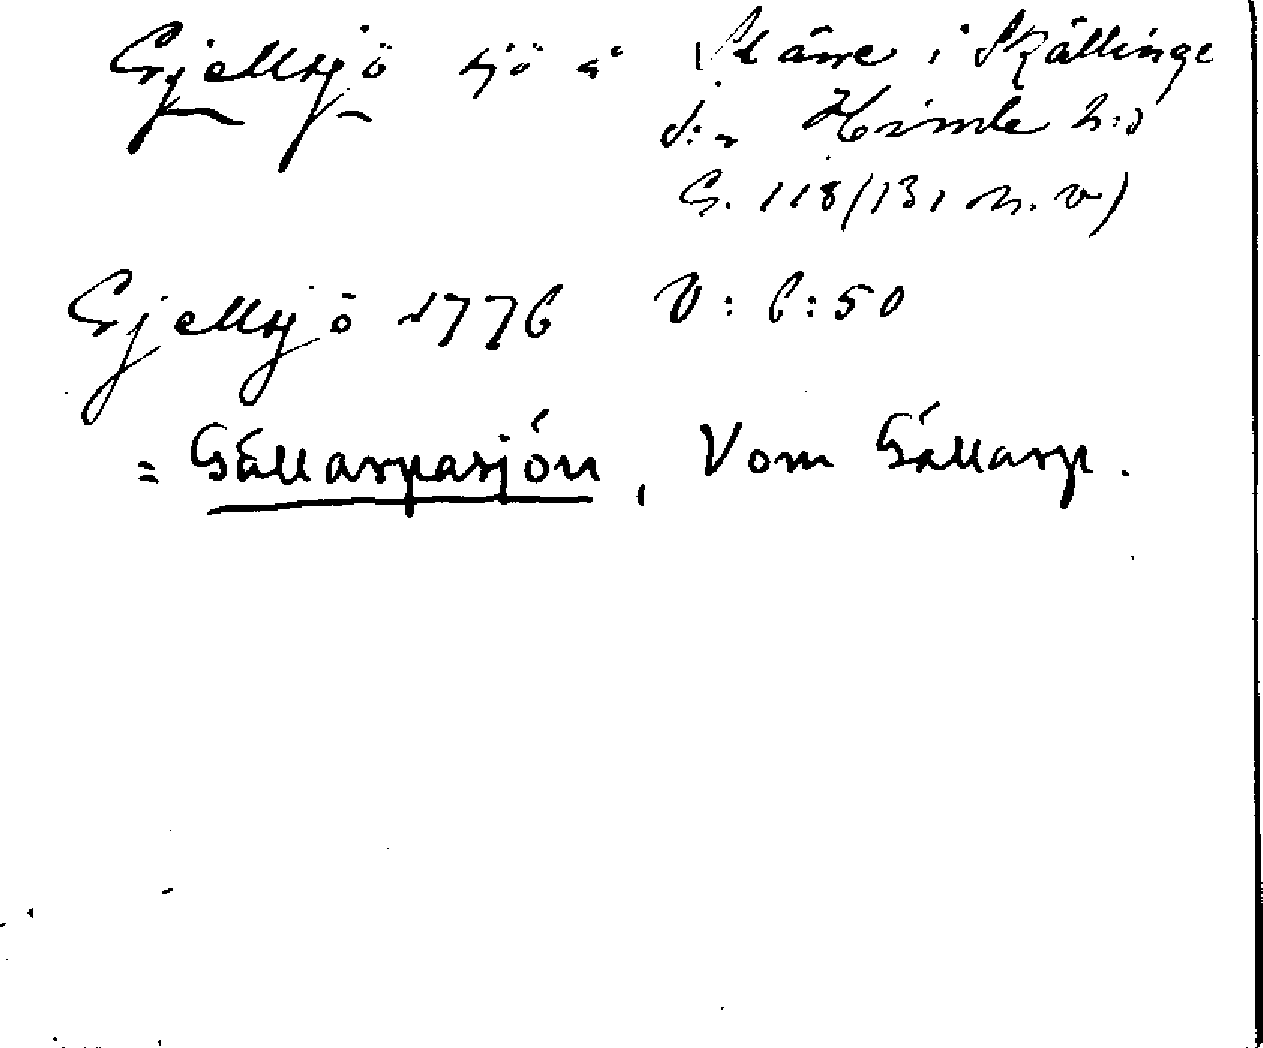 Gjellsjö sjö å Stärre i Skällinge
s:n Himle h:d
G. 118/131 n. v)
Gjellsjö 1776 V: 6:50
= Gállaspasjön, Vom Gállasp.